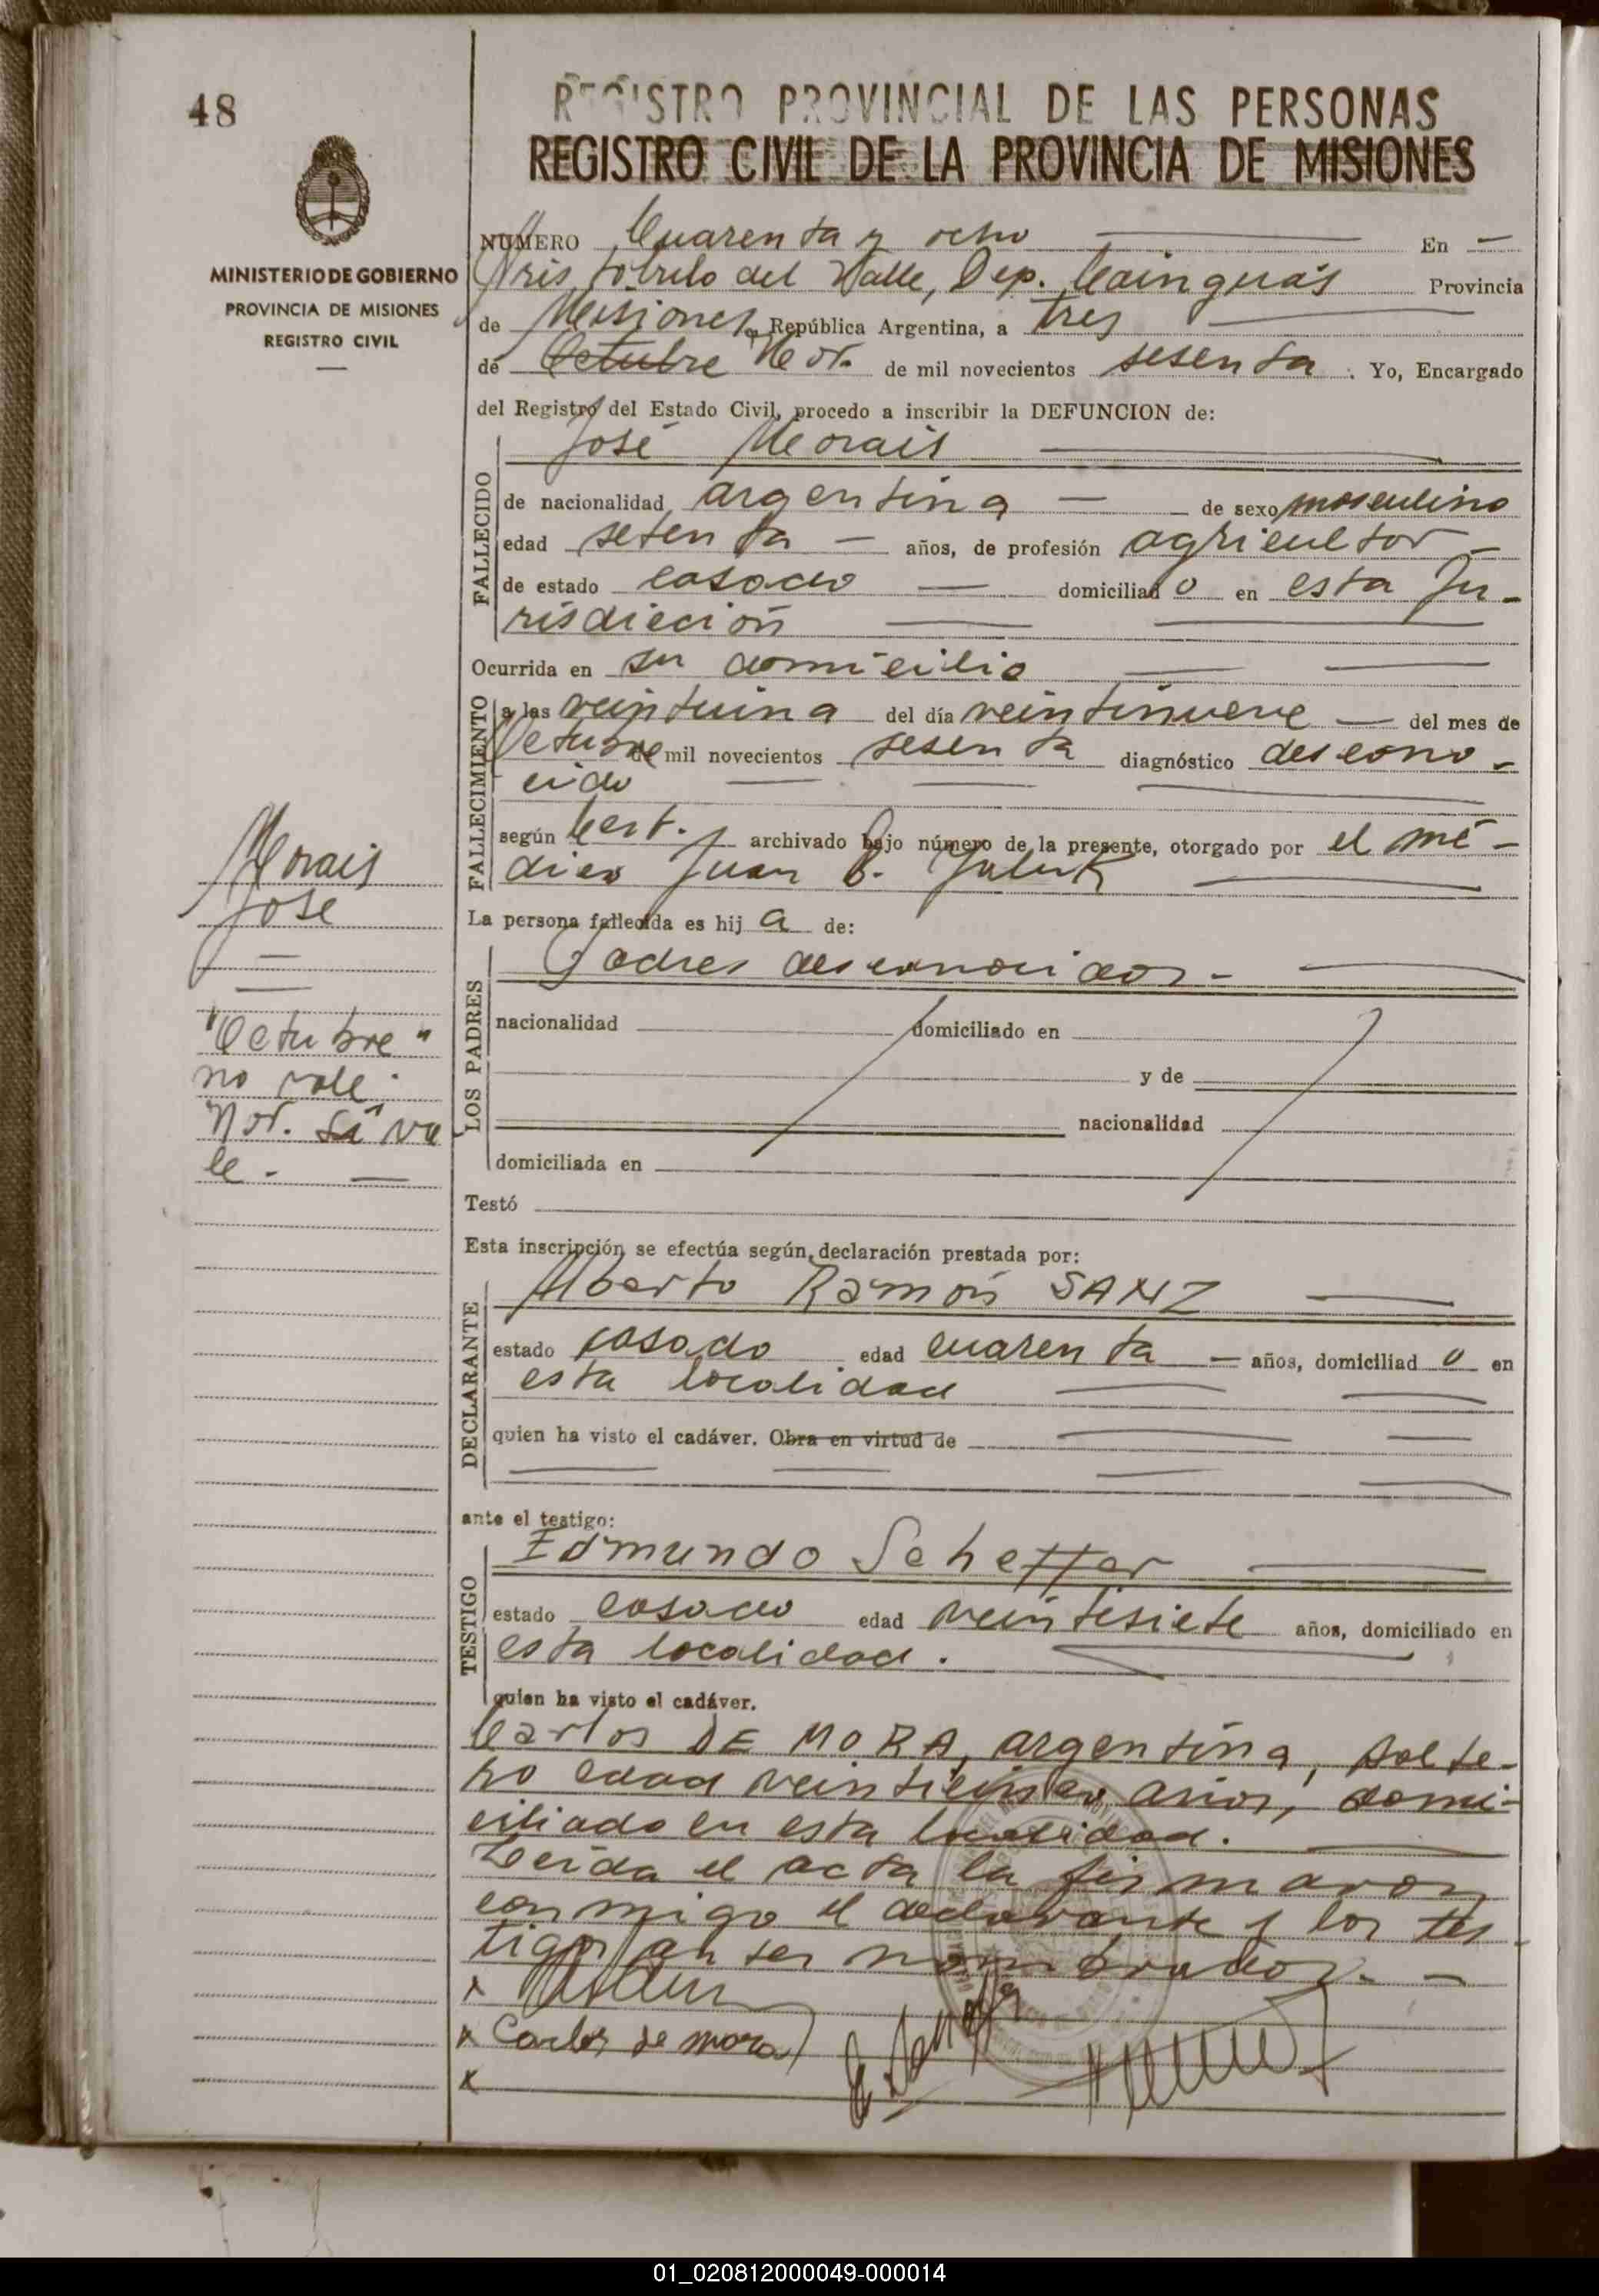 48
REGISTRO PROVINCIAL DE LAS PERSONAS
REGISTRO CIVIL DE LA PROVINCIA DE MISIONES
MINISTERIO DE GOBIERNO
PROVINCIA DE MISIONES
REGISTRO CIVIL
NUMERO Cuarenta y ocho En
Aristóbulo del Valle, Dep. Cainguás Provincia
de Misiones, República Argentina, a tres
de Octubre Nov. de mil novecientos sesenta. Yo, Encargado
del Registro del Estado Civil, procedo a inscribir la DEFUNCION de:
José Morais
FALLECIDO
de nacionalidad argentina de sexo masculino
edad setenta años, de profesión agricultor
de estado casado domiciliado en esta Ju-
risdicción
Ocurrida en su domicilio
FALLECIMIENTO
a las veintiuna del día veintinueve del mes de
Octubre de mil novecientos sesenta diagnóstico descono-
cido
según Cert. archivado bajo número de la presente, otorgado por el mé-
dico Juan B.
La persona fallecida es hij a de:
LOS PADRES
Padres desconocidos.-
nacionalidad domiciliado en
y de
nacionalidad
domiciliada en
Testó
Esta inscripción se efectúa según declaración prestada por:
DECLARANTE
Alberto Ramón SANZ
estado casado edad cuarenta años, domiciliad o en
esta localidad
quien ha visto el cadáver. Obra en virtud de
ante el testigo:
TESTIGO
Edmundo Scheffer
estado casado edad veintisiete años, domiciliado en
esta localidad.
quien ha visto el cadáver.
Carlos DE MORA, argentina, solte-
ro edad años, domi-
ciliado en esta localidad.
Leída el acta la firmaron
conmigo el declarante y los tes-
tigos an tes nombrados.-
x
x Carlos de mora
x
Morais
José
"Octubre"
no vale.
Nov. Sí va
le.-
01_020812000049-000014